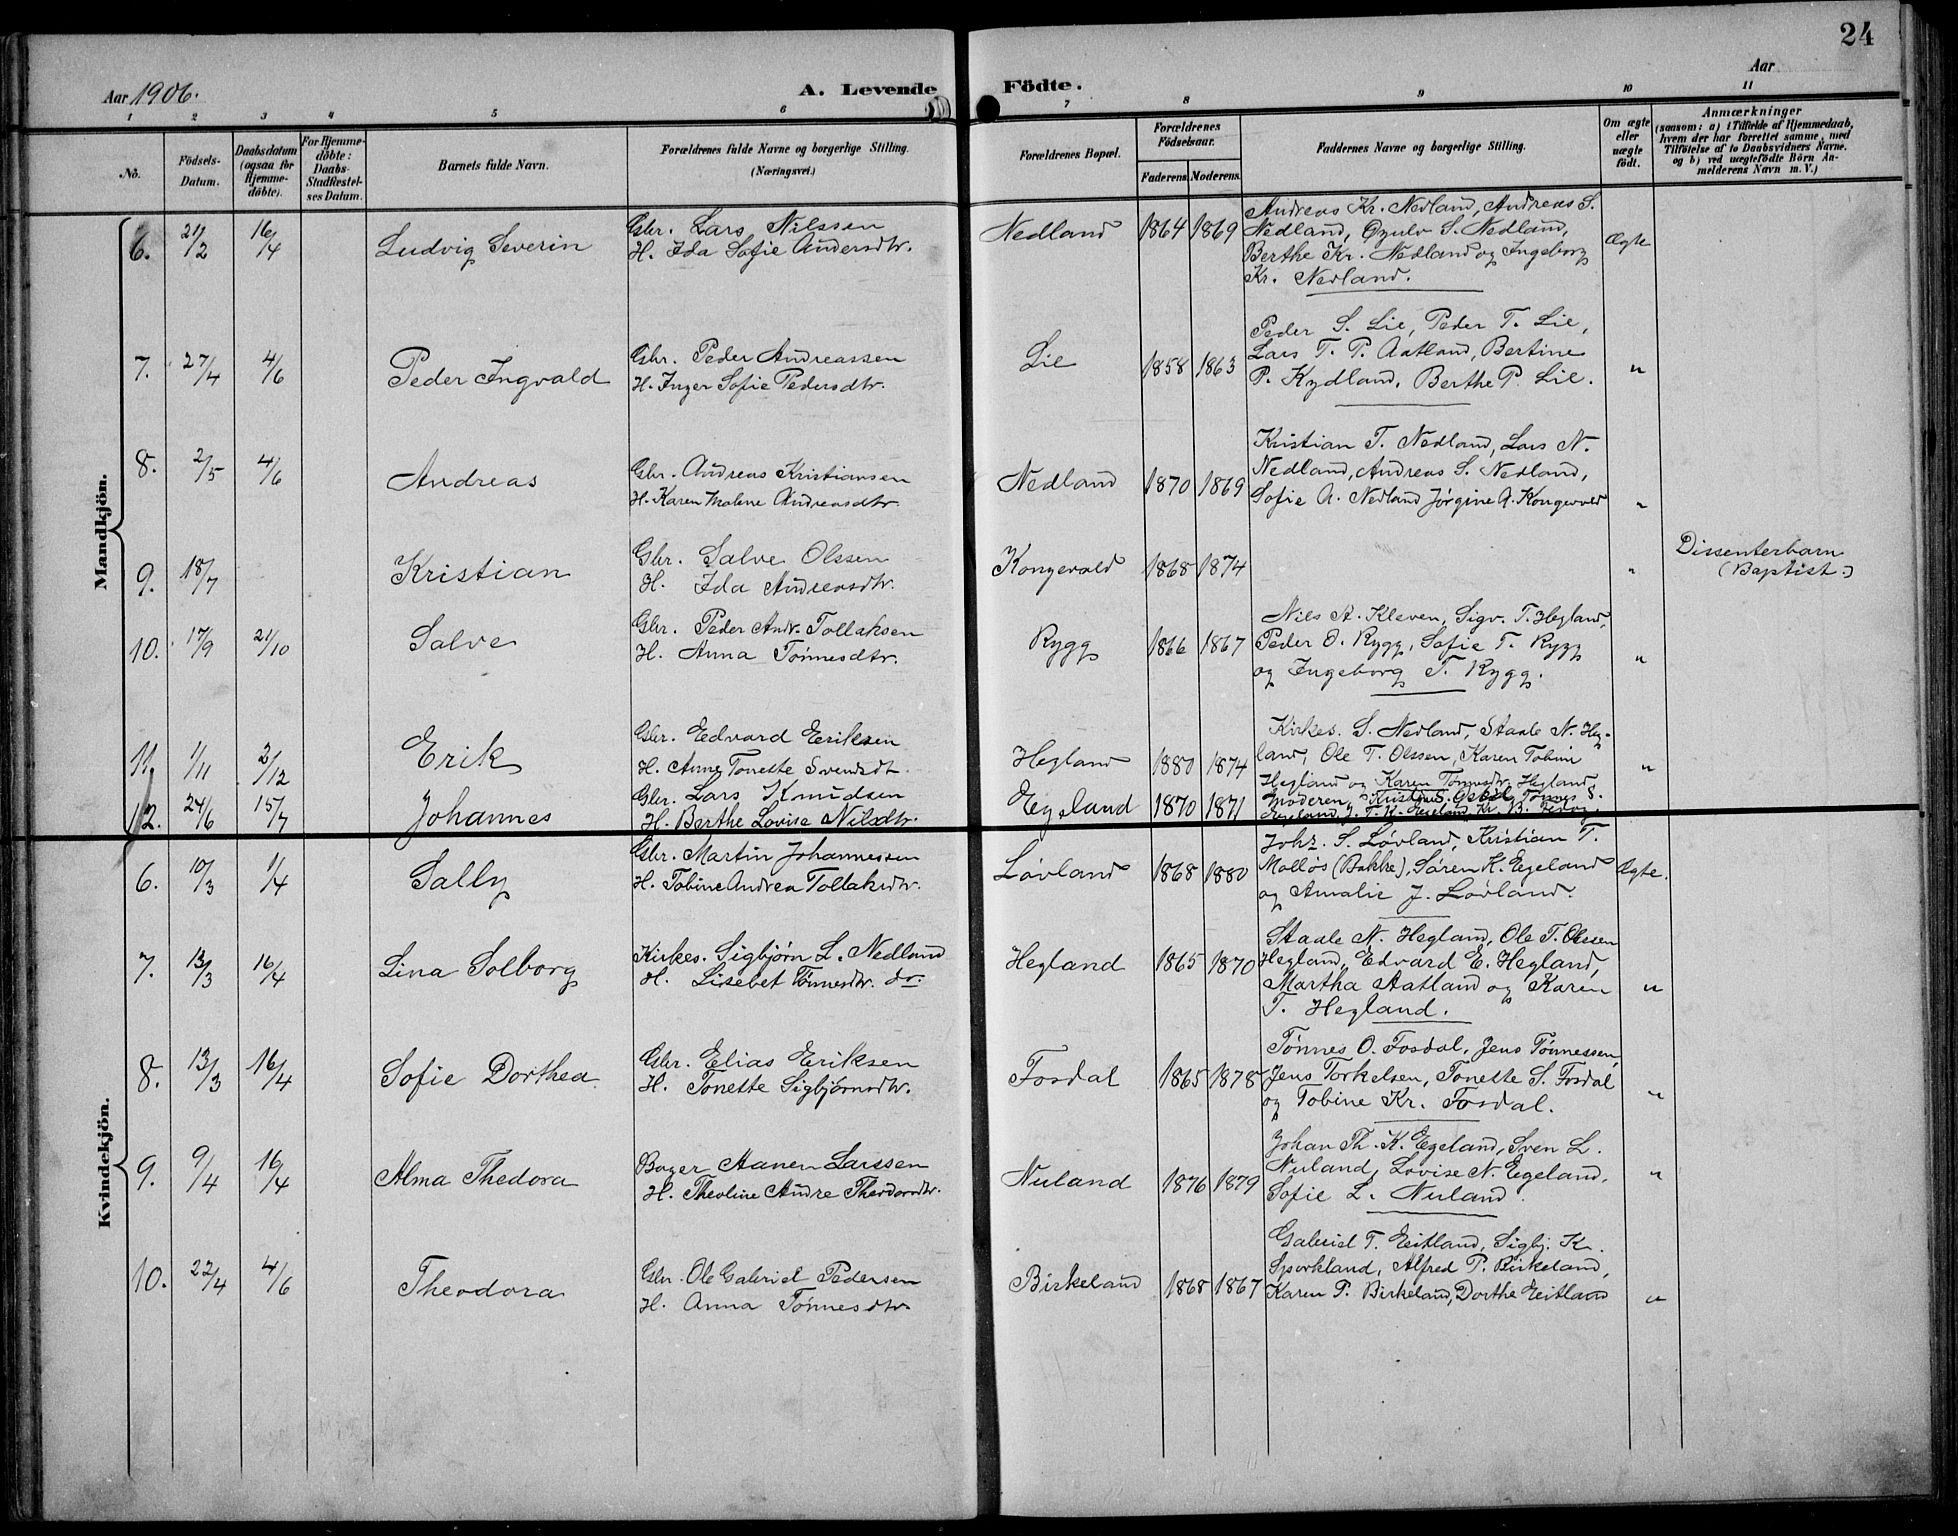 24
Aar 1906.
A. Levende Födte.
Aar
1 2 3 4 5 6 7 8 9 10 11
No.
Födsels-Datum.
Daabsdatum (ogsaa for Hjemme-döbte).
For Hjemme-döbte: Daabs-Stadfæstel-ses Datum.
Barnets fulde Navn.
Forældrenes fulde Navne og borgerlige Stilling.
(Næringsvei.)
Forældrenes Bopæl.
Forældrenes Födselsaar.
Faderens. Moderens.
Faddernes Navne og borgerlige Stilling.
Om ægte eller uægte födt.
Anmærkninger
(saasom: a) i Tilfælde af Hjemmedaab,
hvem der har forrettet samme, med
Tilföielse af to Daabsvidners Navne.
og b) ved uægtefödte Börn An-
melderens Navn m. V.)
Mandkjön.
6. 21/2 16/4 Ludvig Severin
Gbr. Lars Nilssen
H. Ida Sofie Andersdtr.
Nedland 1864 1869
Andreas Kr. Nedland, Andreas S.
Nedland, Gzulv S. Nedland,
Berthe Kr. Nedland og Ingeborg
Kr. Nedland.
Ægte
7. 27/4 4/6 Peder Ingvald
Gbr. Peder Andreassen
H. Inger Sofie Pedersdtr.
Lie 1858 1863
Peder S. Lie, Peder T. Lie,
Lars T. P. Aatland, Bertine
P. Kydland, Berthe P. Lie.
"
8. 2/5 4/6 Andreas
Gbr. Andreas Kristiansen
H. Karen Malene Andreasdtr.
Nedland 1870 1869
Kristian T. Nedland, Lars N.
Nedland, Andreas S. Nedland,
Sofie A. Nedland Jørgine A. Kongevold
"
9. 18/7 Kristian
Gbr. Salve Olssen
H. Ida Andreasdtr.
Kongevold 1868 1874
"
Dissenterbarn
(Baptist.)
10. 17/9 21/10 Salve
Gbr. Peder Andr. Tollaksen
H. Anna Tönnesdtr.
Rygg 1866 1867
Nils A. Kleven, Sigv. T. Hegland,
Peder O. Rygg, Sofie T. Rygg
og Ingeborg T. Rygg.
"
11. 1/11 2/12 Erik
Gbr. Edvard Eriksen
H. Anne Tonette Svendsdt.
Hegland 1880 1874
Kirkes. S. Nedland, Staale N. Heg-
land, Ole T. Olssen, Karen Tobine
Hegland og Karen Tønnesdtr. Hegland
"
12. 24/6 15/7 Johannes
Gbr. Lars Knudsen
H. Berthe Lovise Nilsdtr.
Egeland 1870 1871
Moderen,
Kvindekjön.
6. 10/3 1/4 Sally
Gbr. Martin Johannessen
H. Tobine Andrea Tollaksdtr.
Løvland 1868 1880
Johs. S. Løvland, Kristian T.
Molløs (Bakke), Søren K. Egeland
og Amalie J. Løvland.
Ægte.
7. 13/3 16/4 Lina Solborg
Kirkes. Sigbjørn L. Nedland
H. Lisebet Tønnesdtr. do.
Hegland 1865 1870
Staale N. Hegland, Ole T. Olssen
Hegland, Edvard E. Hegland,
Martha Aatland og Karen
T. Hegland.
"
8. 13/3 16/4 Sofie Dorthea.
Gbr. Elias Eriksen
H. Tonette Sigbjørnsdtr.
Fosdal 1865 1878
Tønnes O. Fosdal, Jens Tønnessen,
Jens Torkelsen, Tonette S. Fosdal
og Tobine Kr. Fosdal.
"
9. 9/4 16/4 Alma Thedora
Bager Aanen Larssen
H. Theoline Andre Theodorsdtr.
Nuland 1876 1879
Johan Th. K. Egeland, Sven L.
Nuland, Lovise N. Egeland.
Sofie L. Nuland.
"
10. 22/4 4/6 Theodora
Gbr. Ole Gabriel Pedersen
H. Anna Tønnesdtr.
Birkeland 1868 1867
Gabriel T. Eitland, Sigbj. K.
Sporkland, Alfred P. Birkeland,
Karen P. Birkeland, Dorthe Eitland
"